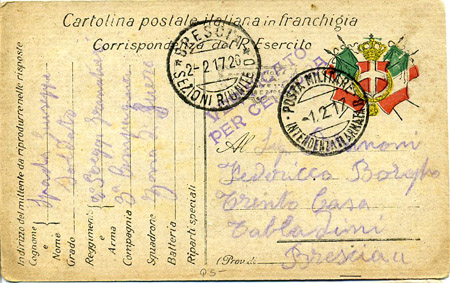 Cartolina postale italiana in franchigia
Corrispondenza del R. Esercito
BRESCIA
2-2 17.20
SEZIONI RIUNITE
VERIFICATO
PER CENSURA
POSTA MILITARE
-1.2.17
INTENDENZA I ARMATA
Indirizzo del mittente da riprodurre nelle risposte
Cognome e Nome
Spada Giuseppe
Grado
Soldato
Reggimento e Arma
Compagnia
3ª Compagnia
Squadrone
Zona di Guerra
Batteria
Riparti speciali
Al Sig.
Federico Borgho
Trento Casa
Tabladini
(Prov. di
Brescia